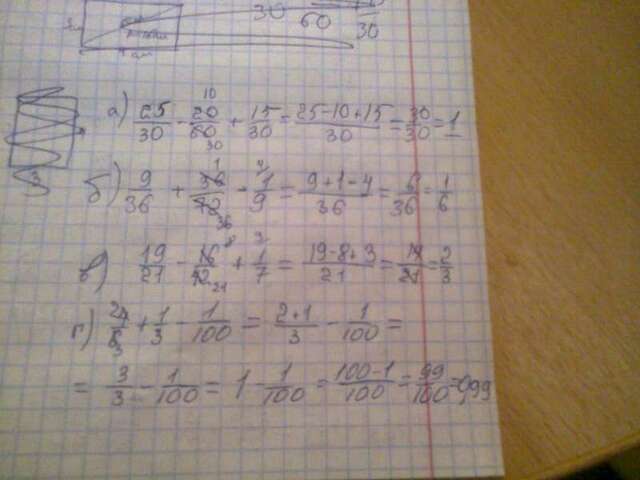 30 60 30
а) 25/30 - 20/60 + 15/30 = (25-10+15)/30 = 30/30 = 1
б) 9/36 + 36/72 - 1/9 = (9+1-4)/36 = 6/36 = 1/6
в) 19/21 - 16/42 + 1/7 = (19-8+3)/21 = 14/21 = 2/3
г) 24/6 + 1/3 - 1/100 = (2+1)/3 - 1/100 =
= 3/3 - 1/100 = 1 - 1/100 = (100-1)/100 = 99/100 = 0,99